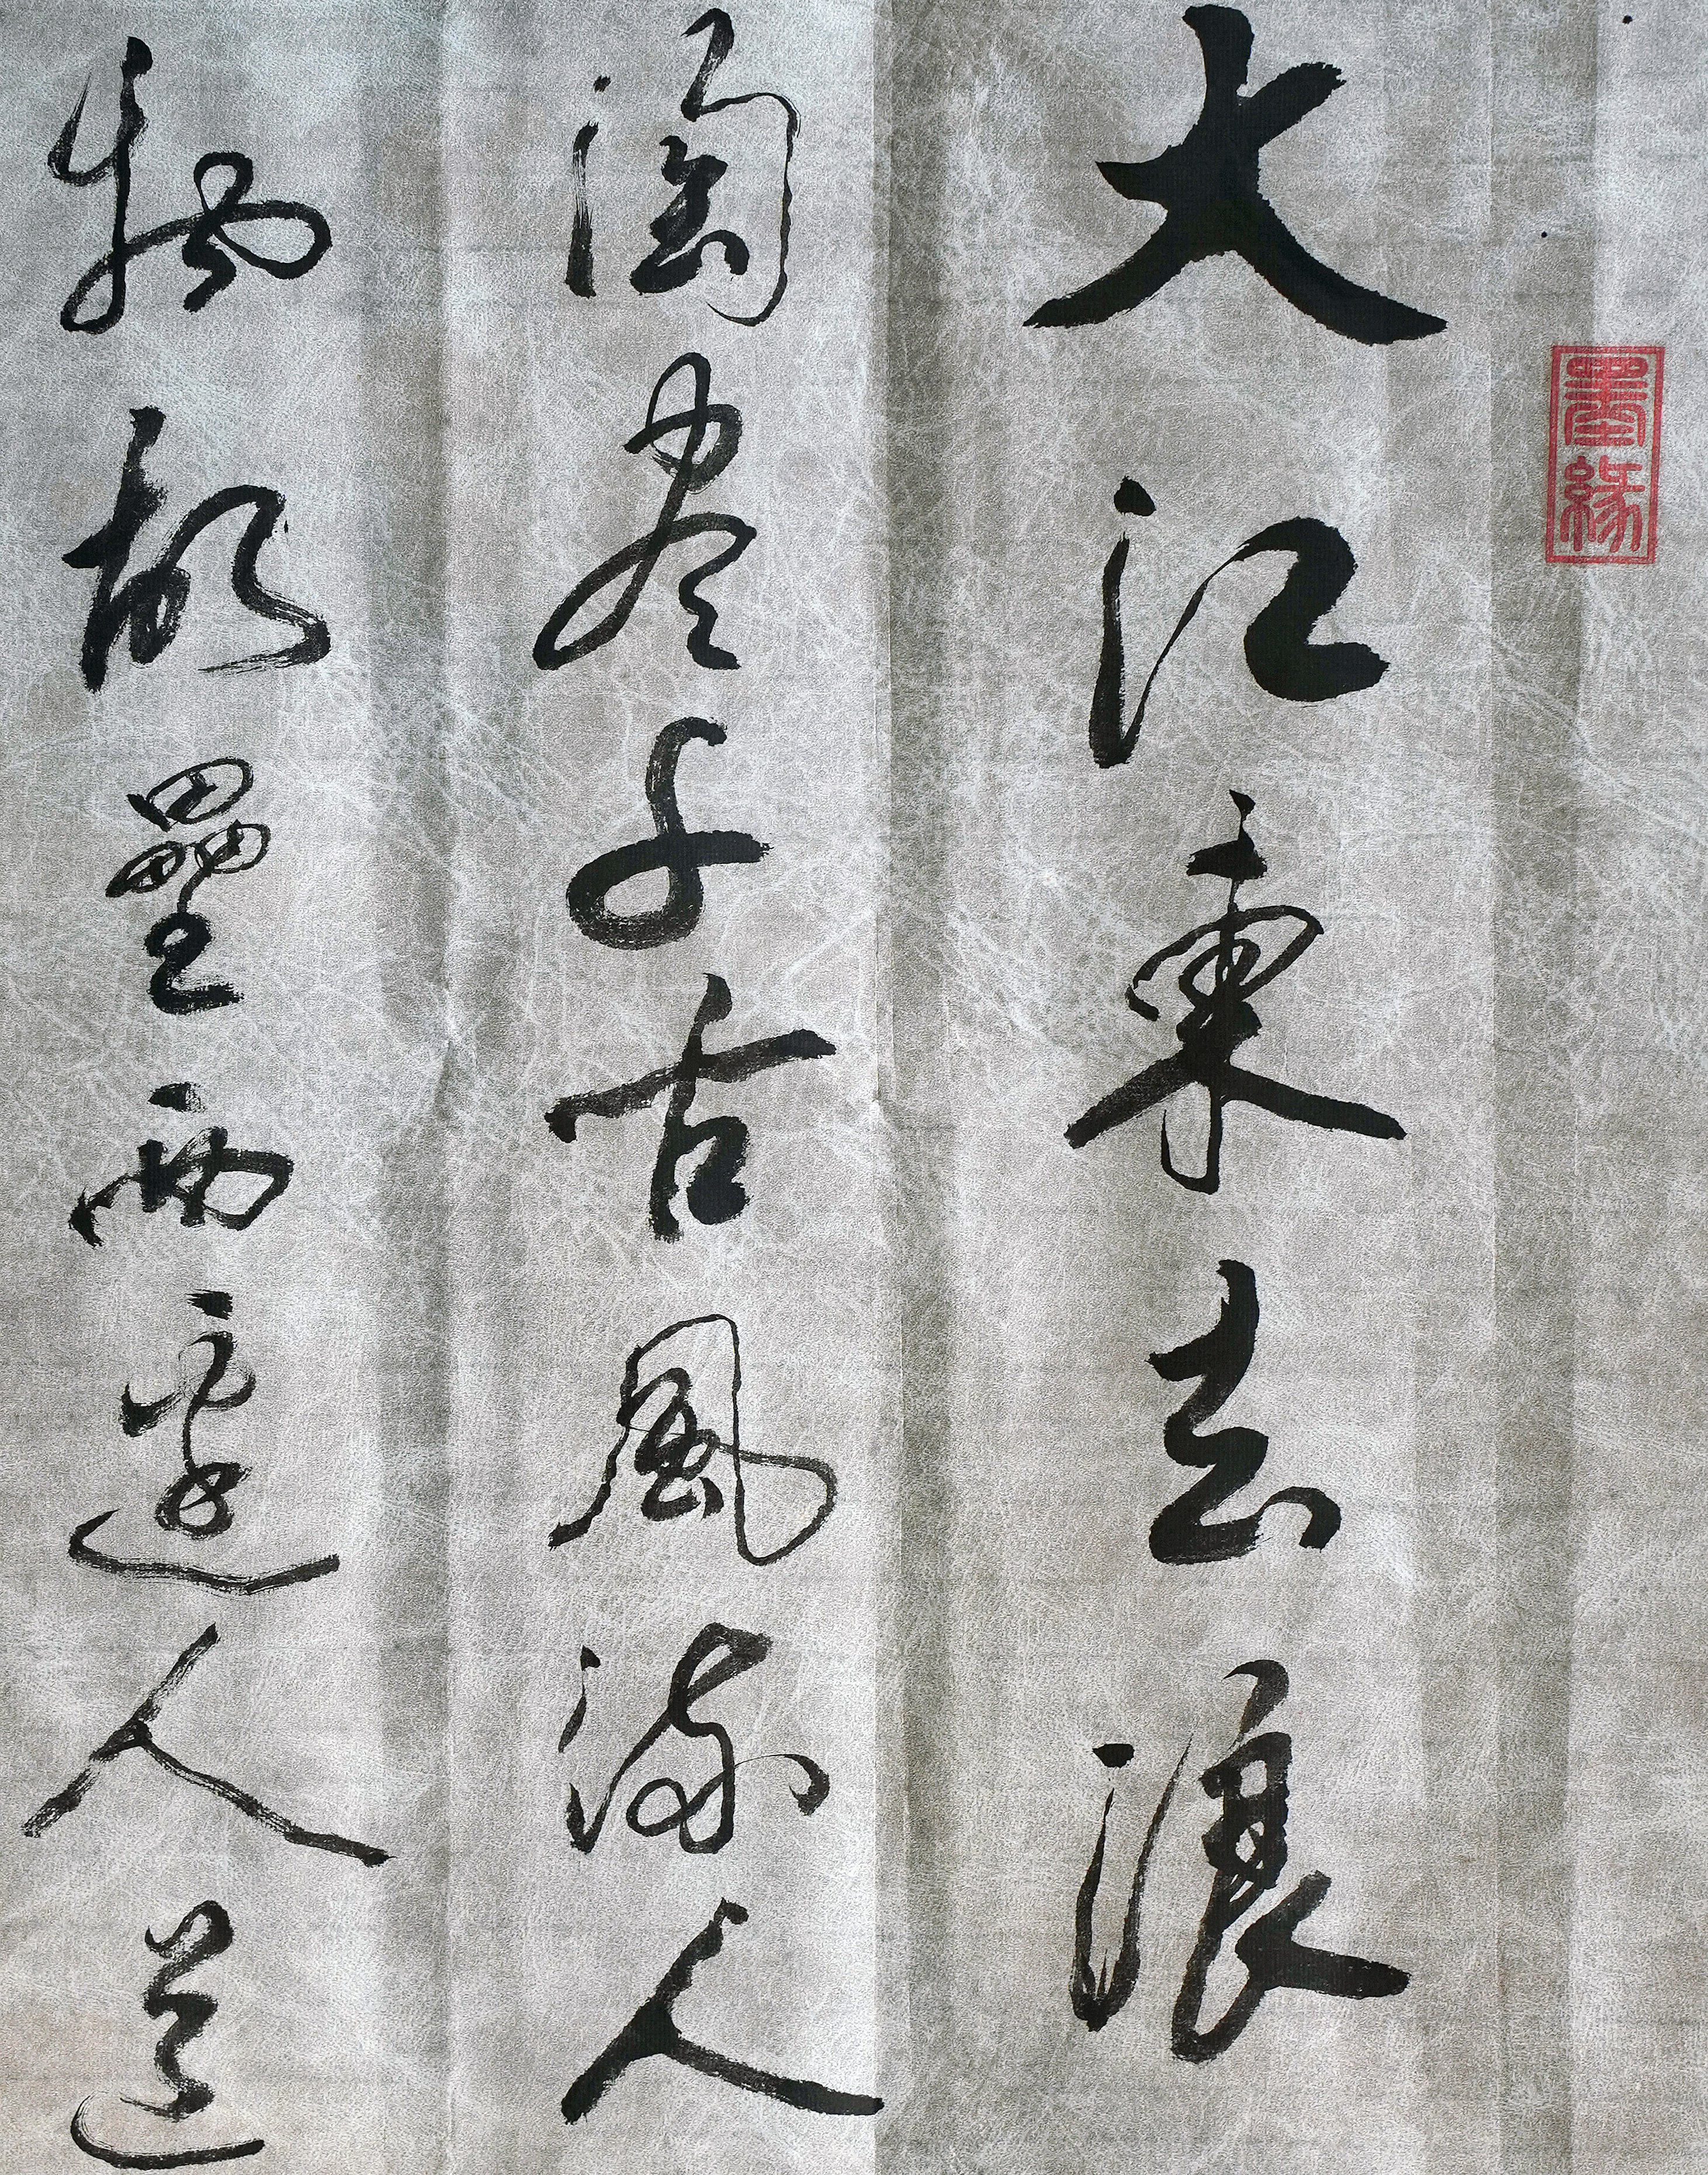 墨緣
大江東去浪
淘尽千古風流人
物故壘西邊人道